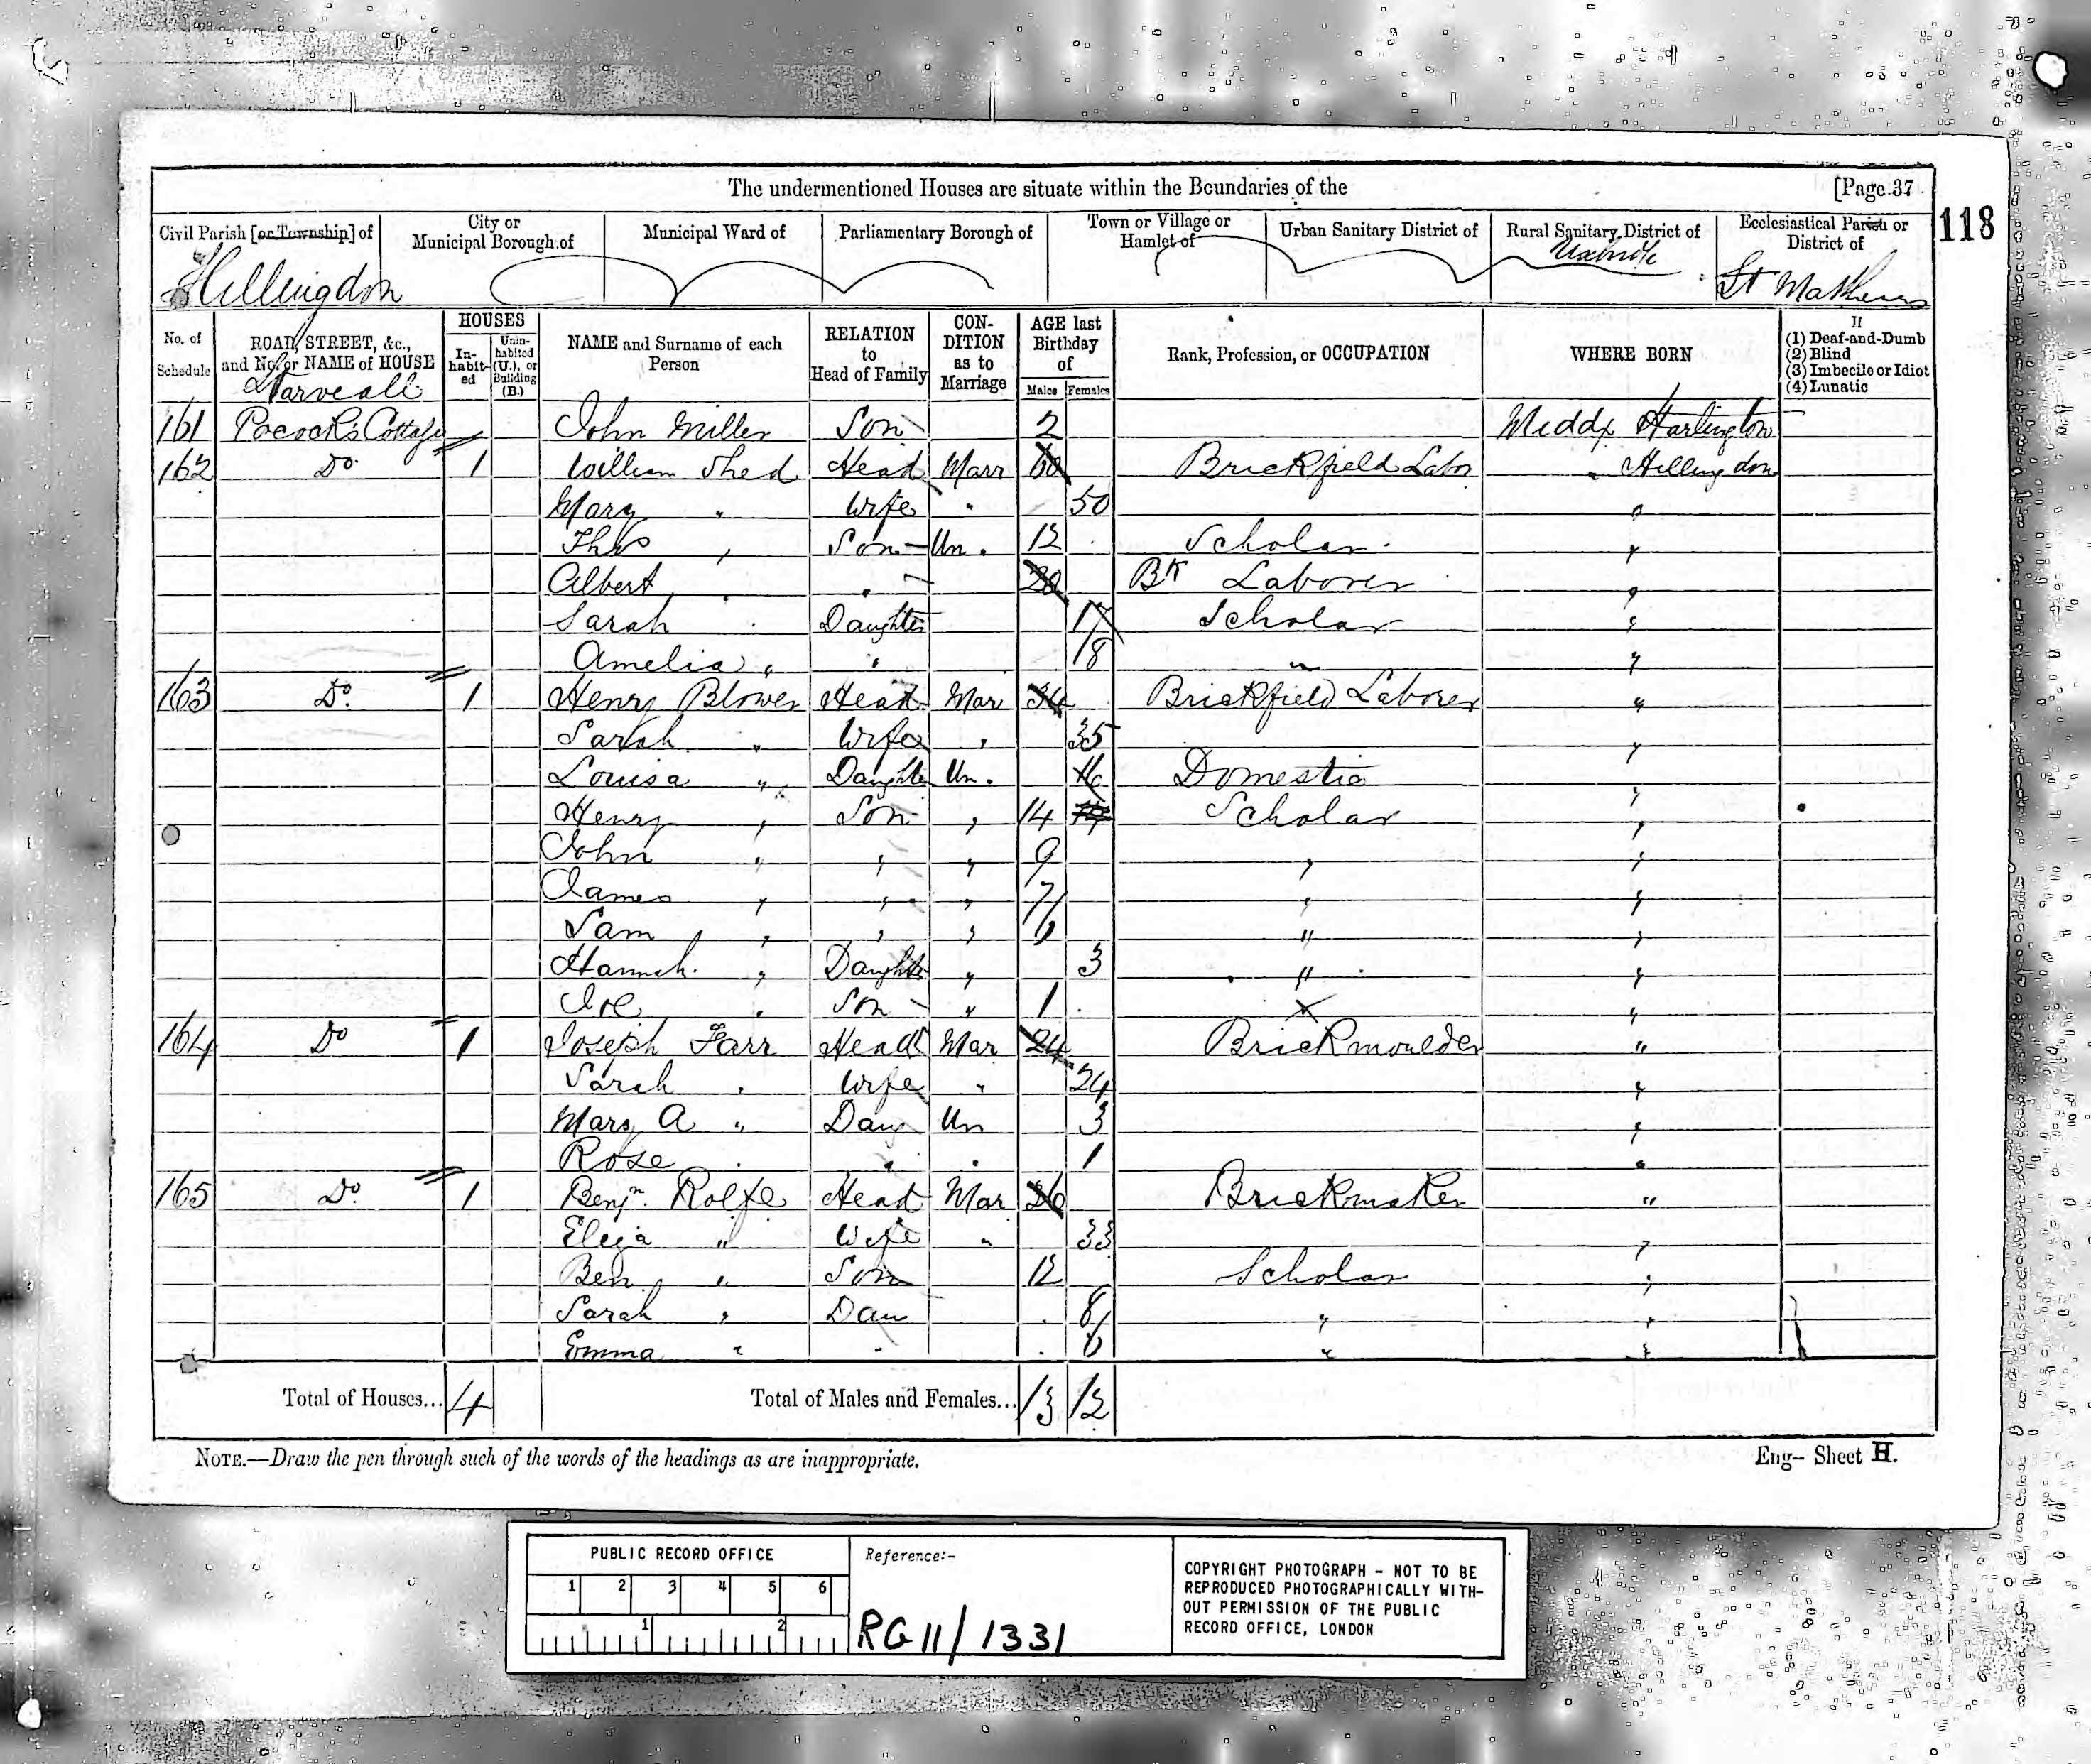 The undermentioned Houses are situate within the Boundaries of the [Page 37
118
Civil Parish [or Township] of City or Municipal Borough of Municipal Ward of Parliamentary Borough of Town or Village or Hamlet of Urban Sanitary District of Rural Sanitary District of Ecclesiastical Parish or District of
Hillingdon Uxbridge St Mathews
No. of Schedule ROAD, STREET, &c., and No. or NAME of HOUSE HOUSES Inhabited Uninhabited (U.), or Building (B.) NAME and Surname of each Person RELATION to Head of Family CONDITION as to Marriage AGE last Birthday of Males Females Rank, Profession, or OCCUPATION WHERE BORN If (1) Deaf-and-Dumb (2) Blind (3) Imbecile or Idiot (4) Lunatic
Starveall
161 Pocock's Cottage John Miller Son 2 Middx Harlington
162 Do 1 William Shed Head Marr 60 Brickfield Labor " Hillingdon
Mary " Wife " 50 "
Thos " Son Un. 12 Scholar "
Albert " " 20 Bk Laborer "
Sarah " Daughter 17 Scholar "
Amelia " " 8 " "
163 Do 1 Henry Blower Head Mar 34 Brickfield Laborer "
Sarah " Wife " 35 "
Louisa " Daughter Un. 16 Domestic "
Henry " Son " 14 Scholar "
John " " " 9 " "
James " " " 7 " "
Sam " " " 6 " "
Hannah " Daughter " 3 " "
Joe " Son " 1 "
164 Do 1 Joseph Farr Head Mar 24 Brickmoulder "
Sarah " Wife " 24 "
Mary A " Dau Un 3 "
Rose " " " 1 "
165 Do 1 Benjn. Rolfe Head Mar 36 Brickmaker "
Eliza " Wife " 33 "
Ben " Son 12 Scholar "
Sarah " Dau 8 " "
Emma " " 6 " "
Total of Houses... 4 Total of Males and Females... 13 12
NOTE.—Draw the pen through such of the words of the headings as are inappropriate.
Eng- Sheet H.
PUBLIC RECORD OFFICE
1 2 3 4 5 6
1 2
Reference:-
RG 11/1331
COPYRIGHT PHOTOGRAPH - NOT TO BE
REPRODUCED PHOTOGRAPHICALLY WITH-
OUT PERMISSION OF THE PUBLIC
RECORD OFFICE, LONDON